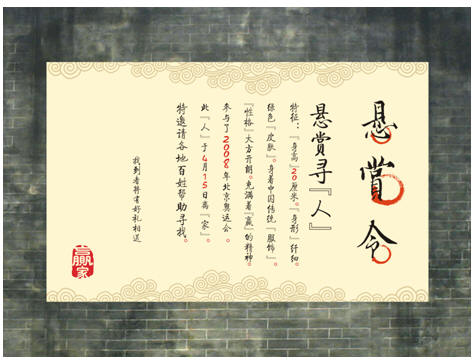 悬赏令
悬赏寻『人』
特征：『身高』20厘米。『身形』纤细。
绿色『皮肤』。身着中国传统『服饰』。
『性格』大方开朗。充满着『赢』的精神。
参与了2008年北京奥运会。
此『人』于4月15日离『家』。
特邀请各地百姓帮助寻找。
找到者将有好礼相送
赢家